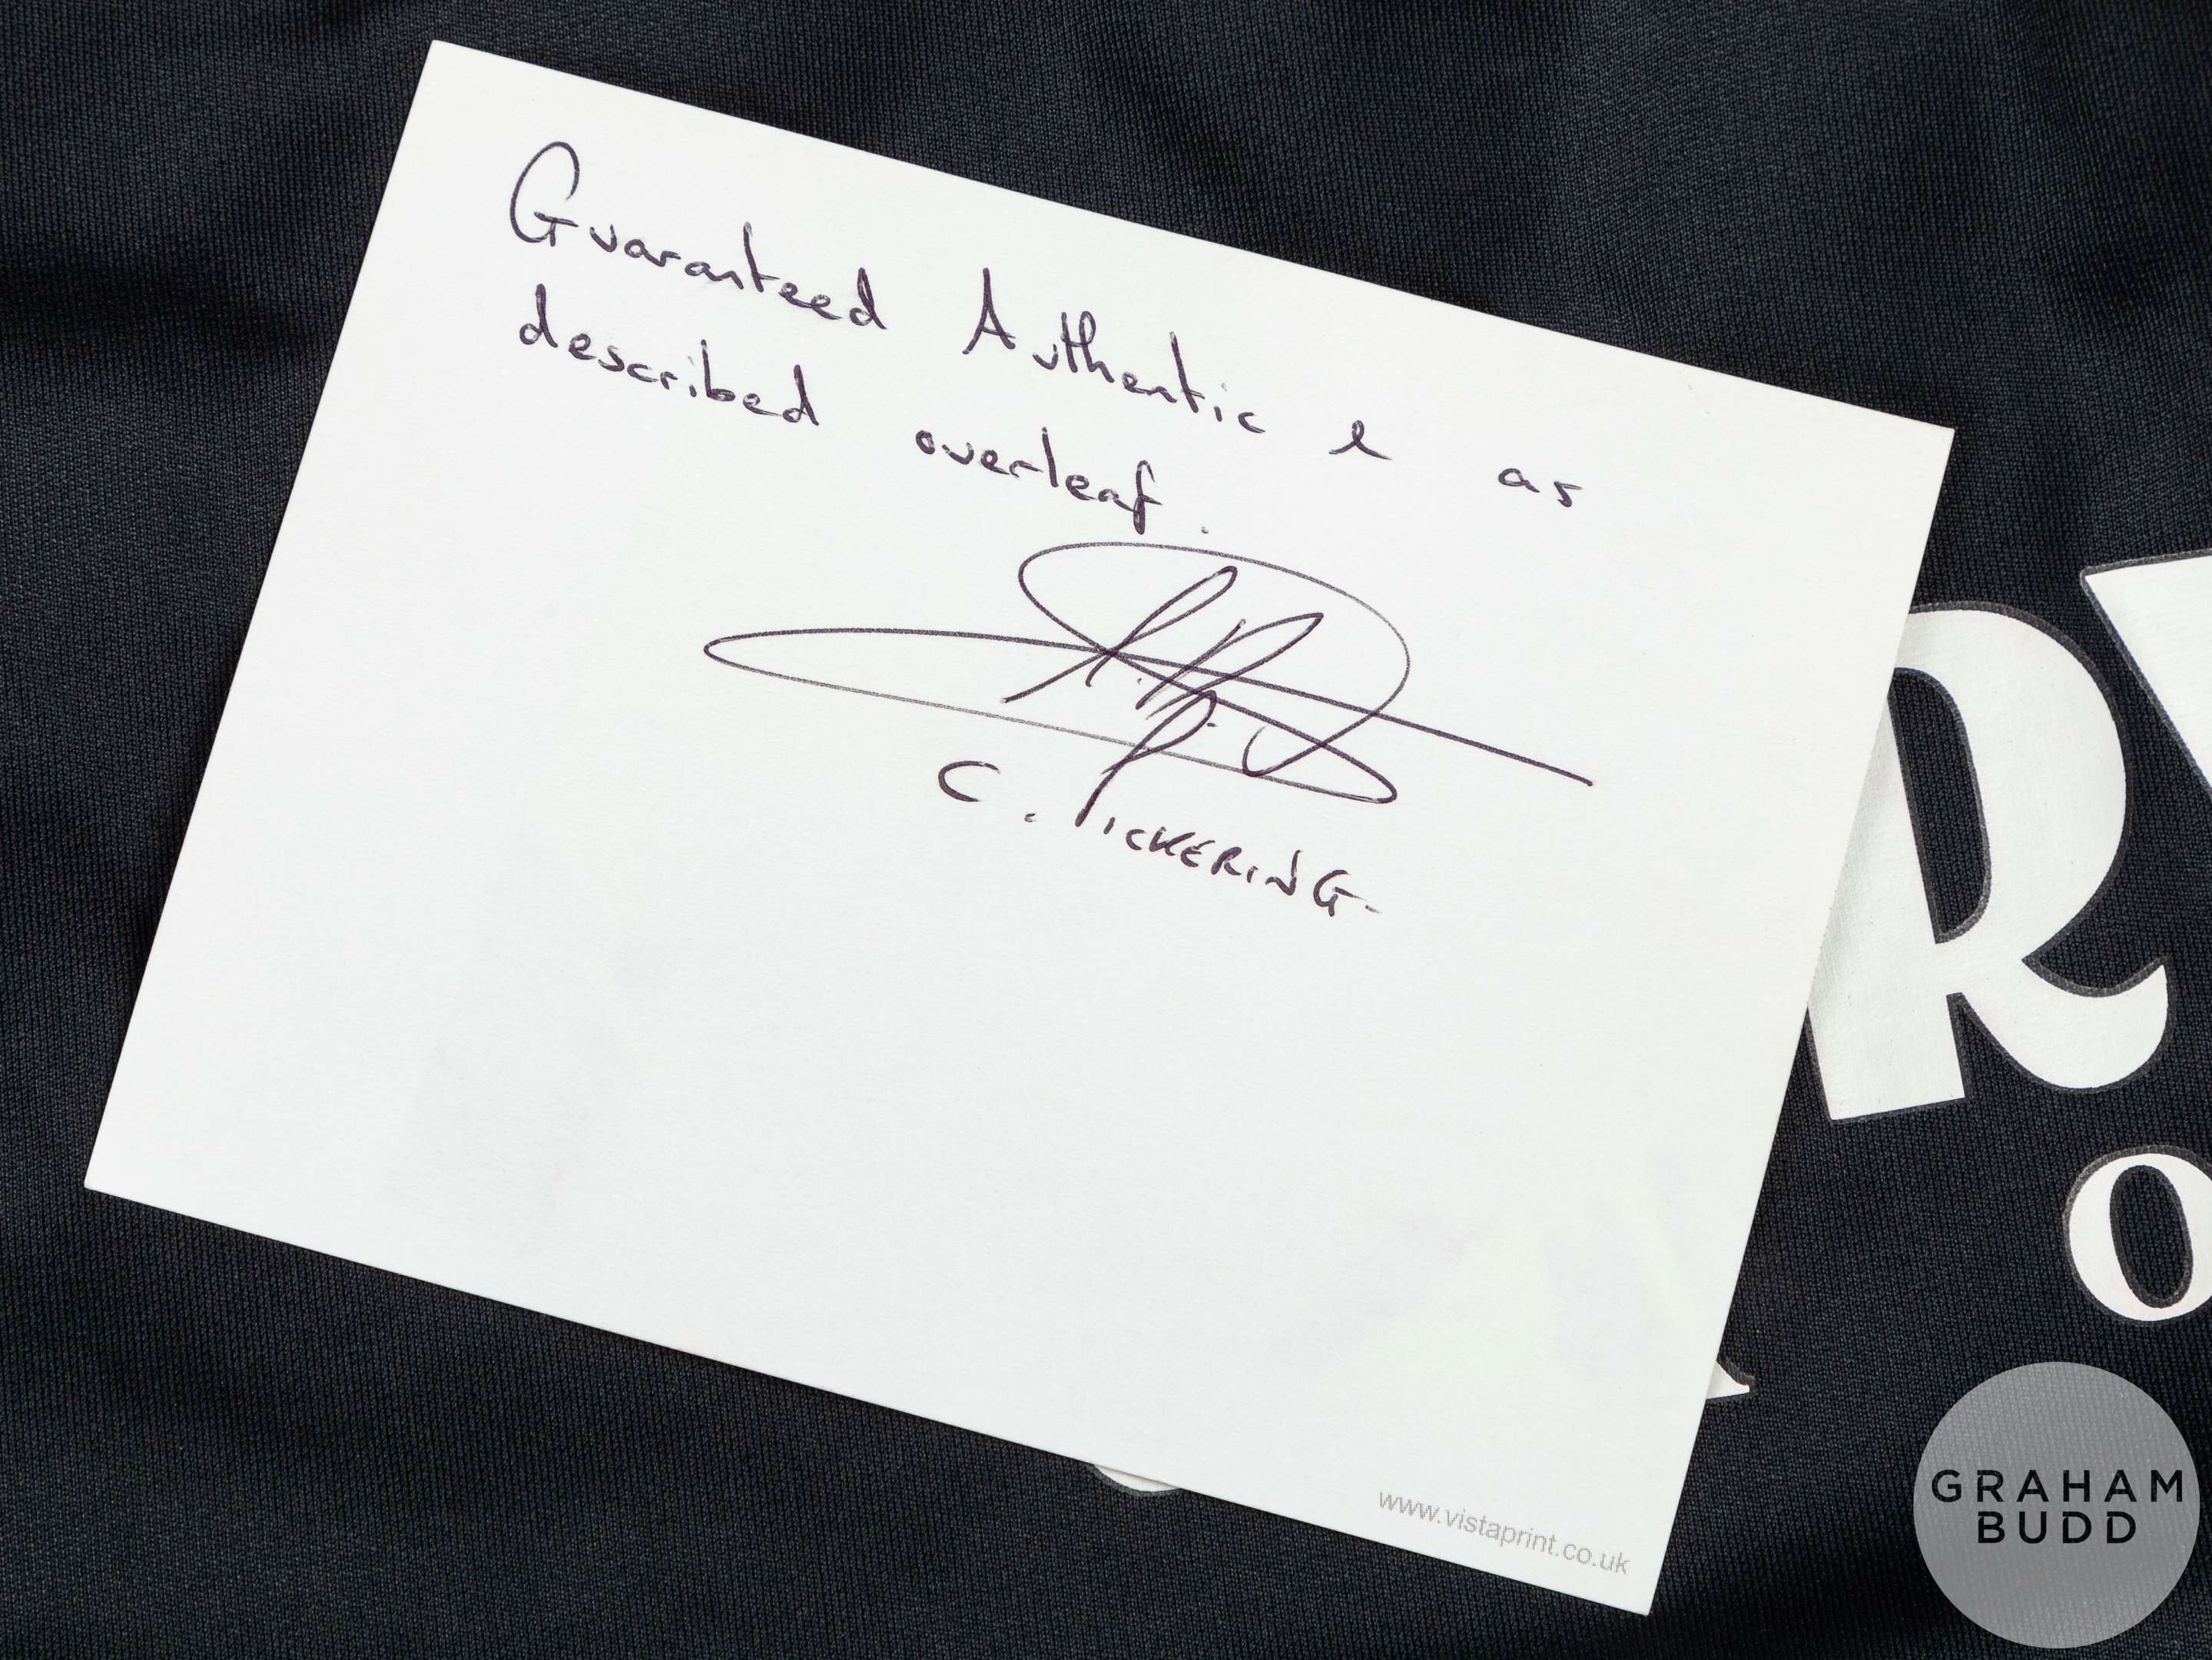 Guaranteed Authentic & as
described overleaf.
C. PICKERING.
R
o
www.vistaprint.co.uk
GRAHAM
BUDD